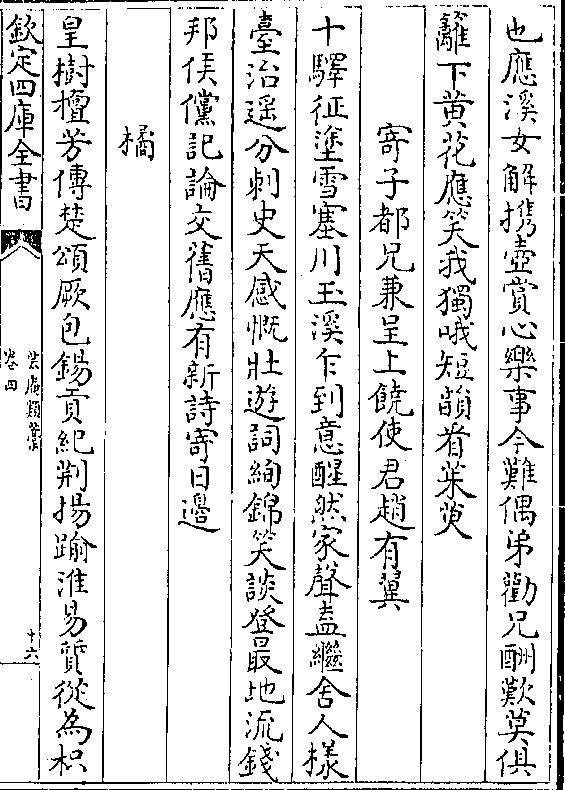 也應溪女解携壺賞心樂事今難偶弟勸兄酬歎莫俱
籬下黄花應笑我獨哦短韻看茱萸
寄子都兄兼呈上饒使君趙有翼
十驛征塗雪塞川玉溪乍到意醒然家聲盍繼舍人様
臺治遥分刺史天感慨壯遊詞絢錦笑談登最地流錢
邦侯儻記論交舊應有新詩寄日邊
橘
皇樹檀芳傳楚頌厥包錫貢紀荆揚踰淮易質從為枳
欽定四庫全書
芸庵類藁
卷四
十六